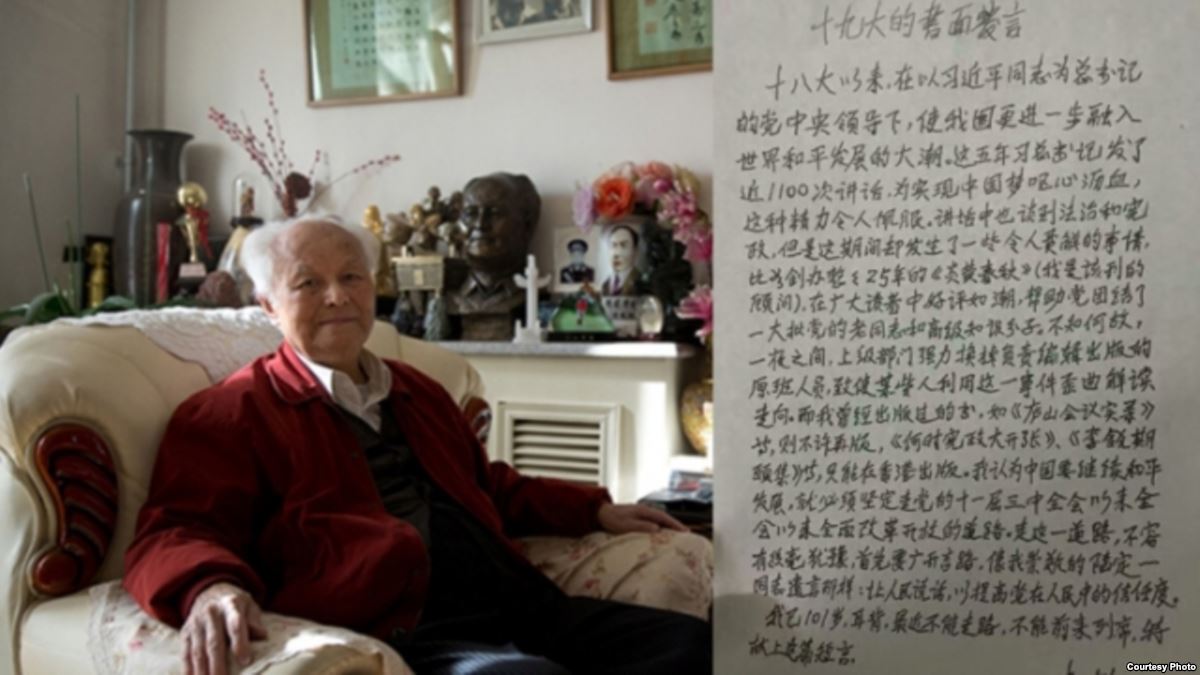 十九大的书面发言
十八大以来,在以习近平同志为总书记
的党中央领导下,使我国更进一步融入
世界和平发展的大潮。这五年习总书记发了
近1100次讲话,为实现中国梦呕心沥血,
这种精力令人佩服。讲话中也谈到法治和宪
政,但是这期间却发生了一些令人费解的事情,
比如创办整整25年的《炎黄春秋》(我是该刊的
顾问),在广大读者中好评如潮,帮助党团结了
一大批党的老同志和高级知识分子。不知何故,
一夜之间,上级部门强力换掉负责编辑出版的
原班人员,致使某些人利用这一事件歪曲解读
走向。而我曾经出版过的书,如《庐山会议实录》
等,则不许再版,《何时宪政大开张》、《李锐期
颐集》等,只能在香港出版。我认为中国要继续和平
发展,就必须坚定走党的十一届三中全会以来全
会以来全面改革开放的道路。走这一道路,不容
有丝毫犹豫,首先要广开言路,像我崇敬的陆定一
同志遗言那样:让人民说话,以提高党在人民中的信任度。
我已101岁,耳背,最近不能走路,不能前来列席,特
献上这篇短言。
Courtesy Photo